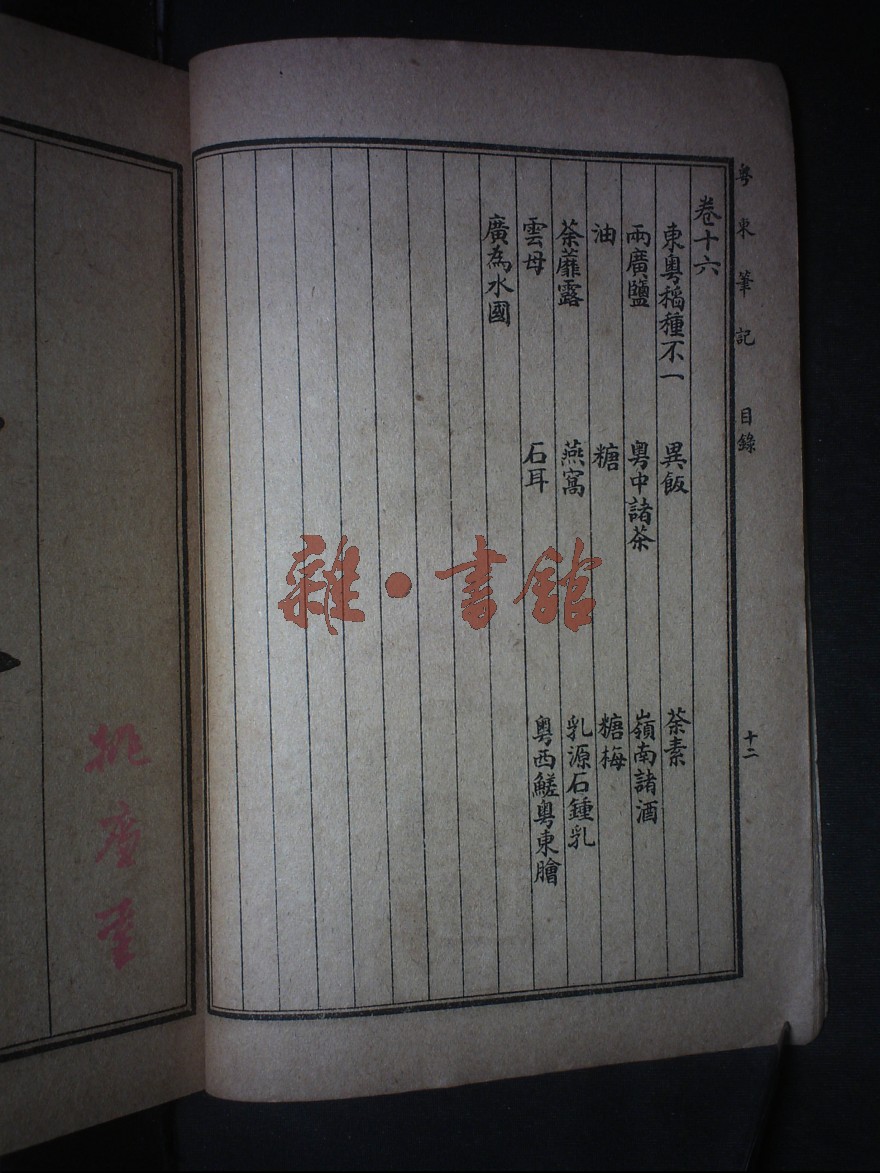 粵東筆記 目錄 十二
卷十六
東粵稻種不一 異飯 茶素
兩廣鹽 粵中諸茶 嶺南諸酒
油 糖 糖梅
荼蘼露 燕窩 乳源石鍾乳
雲母 石耳 粵西鮓粵東膾
廣為水國
雜·書館